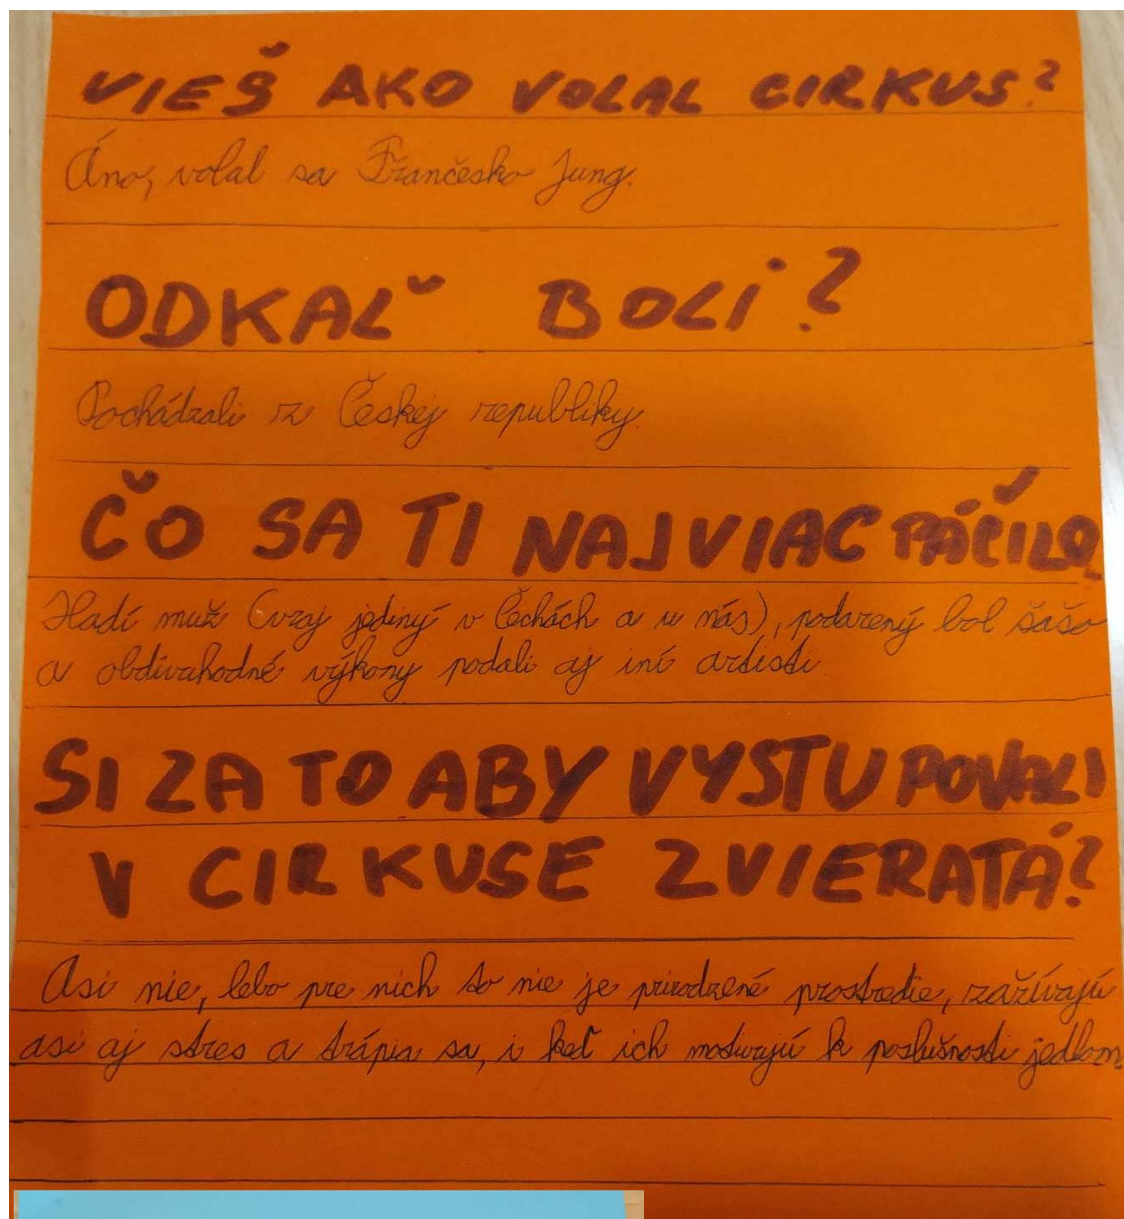 VIEŠ AKO VOLAL CIRKUS?
Áno, volal sa Frančesko Jung.
ODKAĽ BOLI?
Pochádzali z Českej republiky.
ČO SA TI NAJVIAC PÁČILO
Hadí muž (vraj jediný v Čechách a u nás), podarený bol šašo
a obdivuhodné výkony podali aj iní artisti
SI ZA TO ABY VYSTUPOVALI
V CIRKUSE ZVIERATÁ?
Asi nie, lebo pre nich to nie je prirodzené prostredie, zažívajú
asi aj stres a trápia sa, i keď ich motivujú k poslušnosti jedlom.